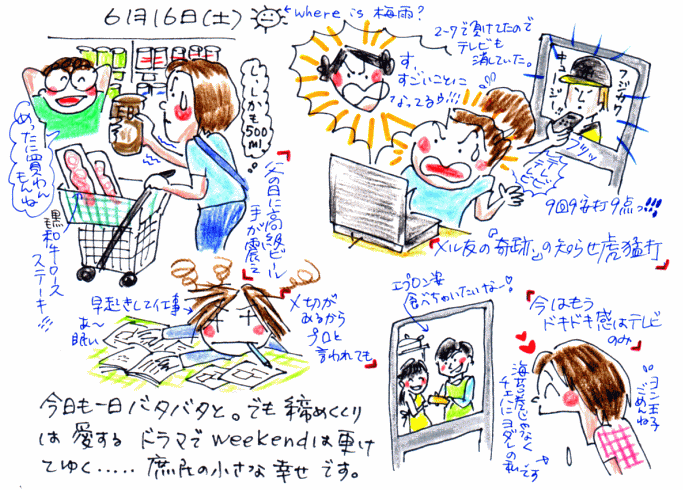 6月16日(土)
where is 梅雨?
めったに買わんもんね
しっしかも500ml
50
黒和牛ロースステーキ!!!
「父の日に高級ビール手が震え」
す、すごいことになってるゥ!!!
2-7で負けてたのでテレビも消していた。
テレビテレビ
フジカワキュージー!!
ブツッ
9回9安打9点っ!!!
「メル友の『奇跡』の知らせ虎猛打」
早起きして仕事
あ〜眠い
「〆切があるからプロと言われても」
エプロン姿食べちゃいたいな〜♡
「今はもうドキドキ感はテレビのみ」
ヨン王子ごめんね
海苔巻じゃなくチェハにヨダレの私です
今日も一日バタバタと。でも締めくくり
は愛するドラマでweekendは更け
てゆく……庶民の小さな幸せです。